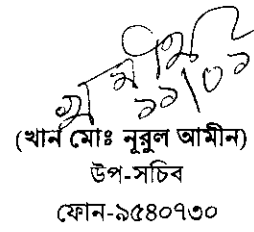 ১১/০১
(খান মোঃ নূরুল আমীন)
উপ-সচিব
ফোন-৯৫৪০৭৩০